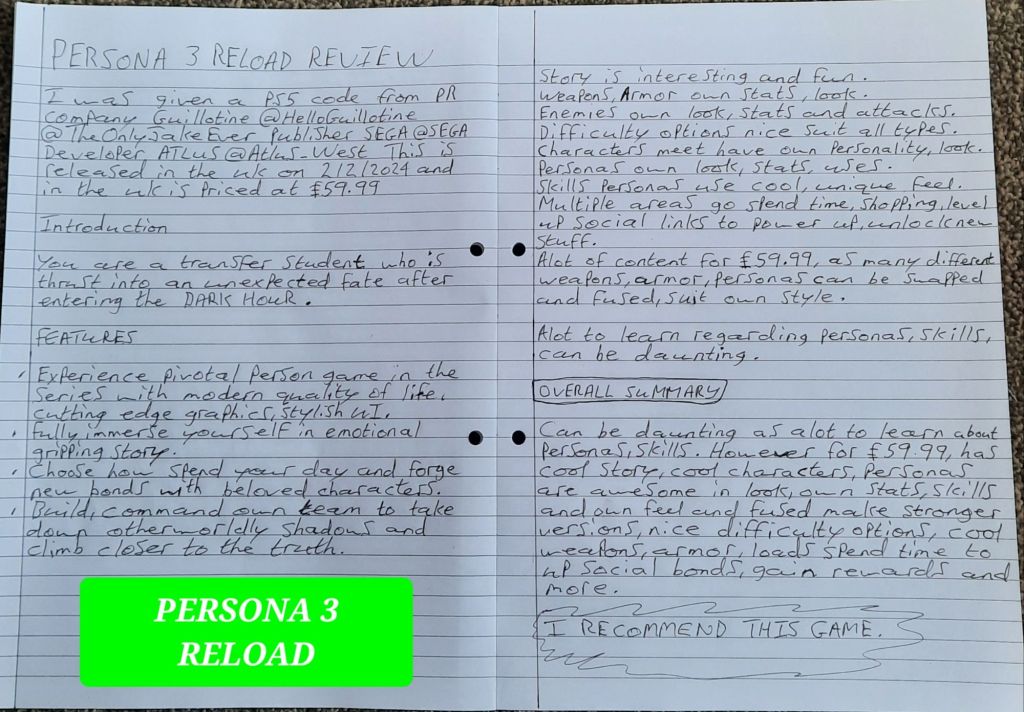 PERSONA 3 RELOAD REVIEW
I was given a PS5 code from PR
Company Guillotine @HelloGuillotine
@TheOnlyJakeEver Publisher SEGA @SEGA
Developer ATLUS @Atlus_West This is
released in the uk on 2/2/2024 and
in the uk is Priced at £59.99
Introduction
You are a transfer student who is
thrust into an unexpected fate after
entering the DARK HOUR.
FEATURES
Experience pivotal Person game in the
series with modern quality of life,
cutting edge graphics, stylish UI.
Fully immerse yourself in emotional
gripping story.
Choose how spend your day and forge
new bonds with beloved characters.
Build, command own team to take
down otherworldly shadows and
climb closer to the truth.
PERSONA 3
RELOAD
Story is interesting and fun.
Weapons, Armor own stats, look.
Enemies own look, stats and attacks.
Difficulty options nice suit all types.
Characters meet have own Personality, look.
Personas own look, stats, uses.
Skills Personas use cool, unique feel.
Multiple areas go spend time, shopping, level
up social links to power up, unlock new
stuff.
Alot of content for £59.99, as many different
weapons, armor, personas can be swapped
and fused, suit own style.
Alot to learn regarding personas, skills,
can be daunting.
OVERALL SUMMARY
Can be daunting as alot to learn about
Personas, skills. However for £59.99, has
cool story, cool characters, Personas
are awesome in look, own stats, skills
and own feel and fused make stronger
versions, nice difficulty options, cool
weapons, armor, loads spend time to
up social bonds, gain rewards and
more.
I RECOMMEND THIS GAME.